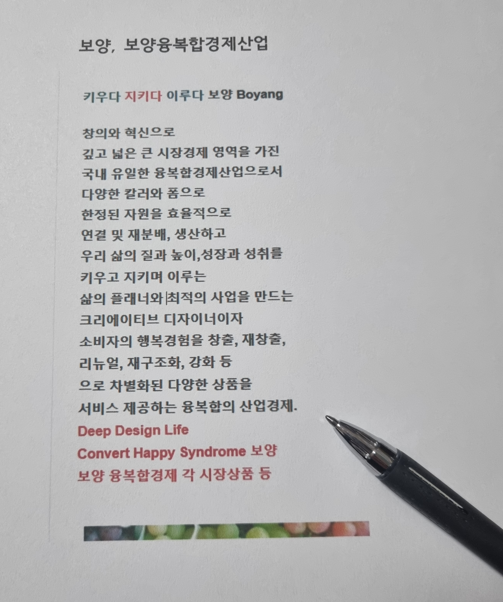 보양, 보양융복합경제산업
키우다 지키다 이루다 보양 Boyang
창의와 혁신으로
깊고 넓은 큰 시장경제 영역을 가진
국내 유일한 융복합경제산업으로서
다양한 칼러와 폼으로
한정된 자원을 효율적으로
연결 및 재분배, 생산하고
우리 삶의 질과 높이,성장과 성취를
키우고 지키며 이루는
삶의 플래너와|최적의 사업을 만드는
크리에이티브 디자이너이자
소비자의 행복경험을 창출, 재창출,
리뉴얼, 재구조화, 강화 등
으로 차별화된 다양한 상품을
서비스 제공하는 융복합의 산업경제.
Deep Design Life
Convert Happy Syndrome 보양
보양 융복합경제 각 시장상품 등